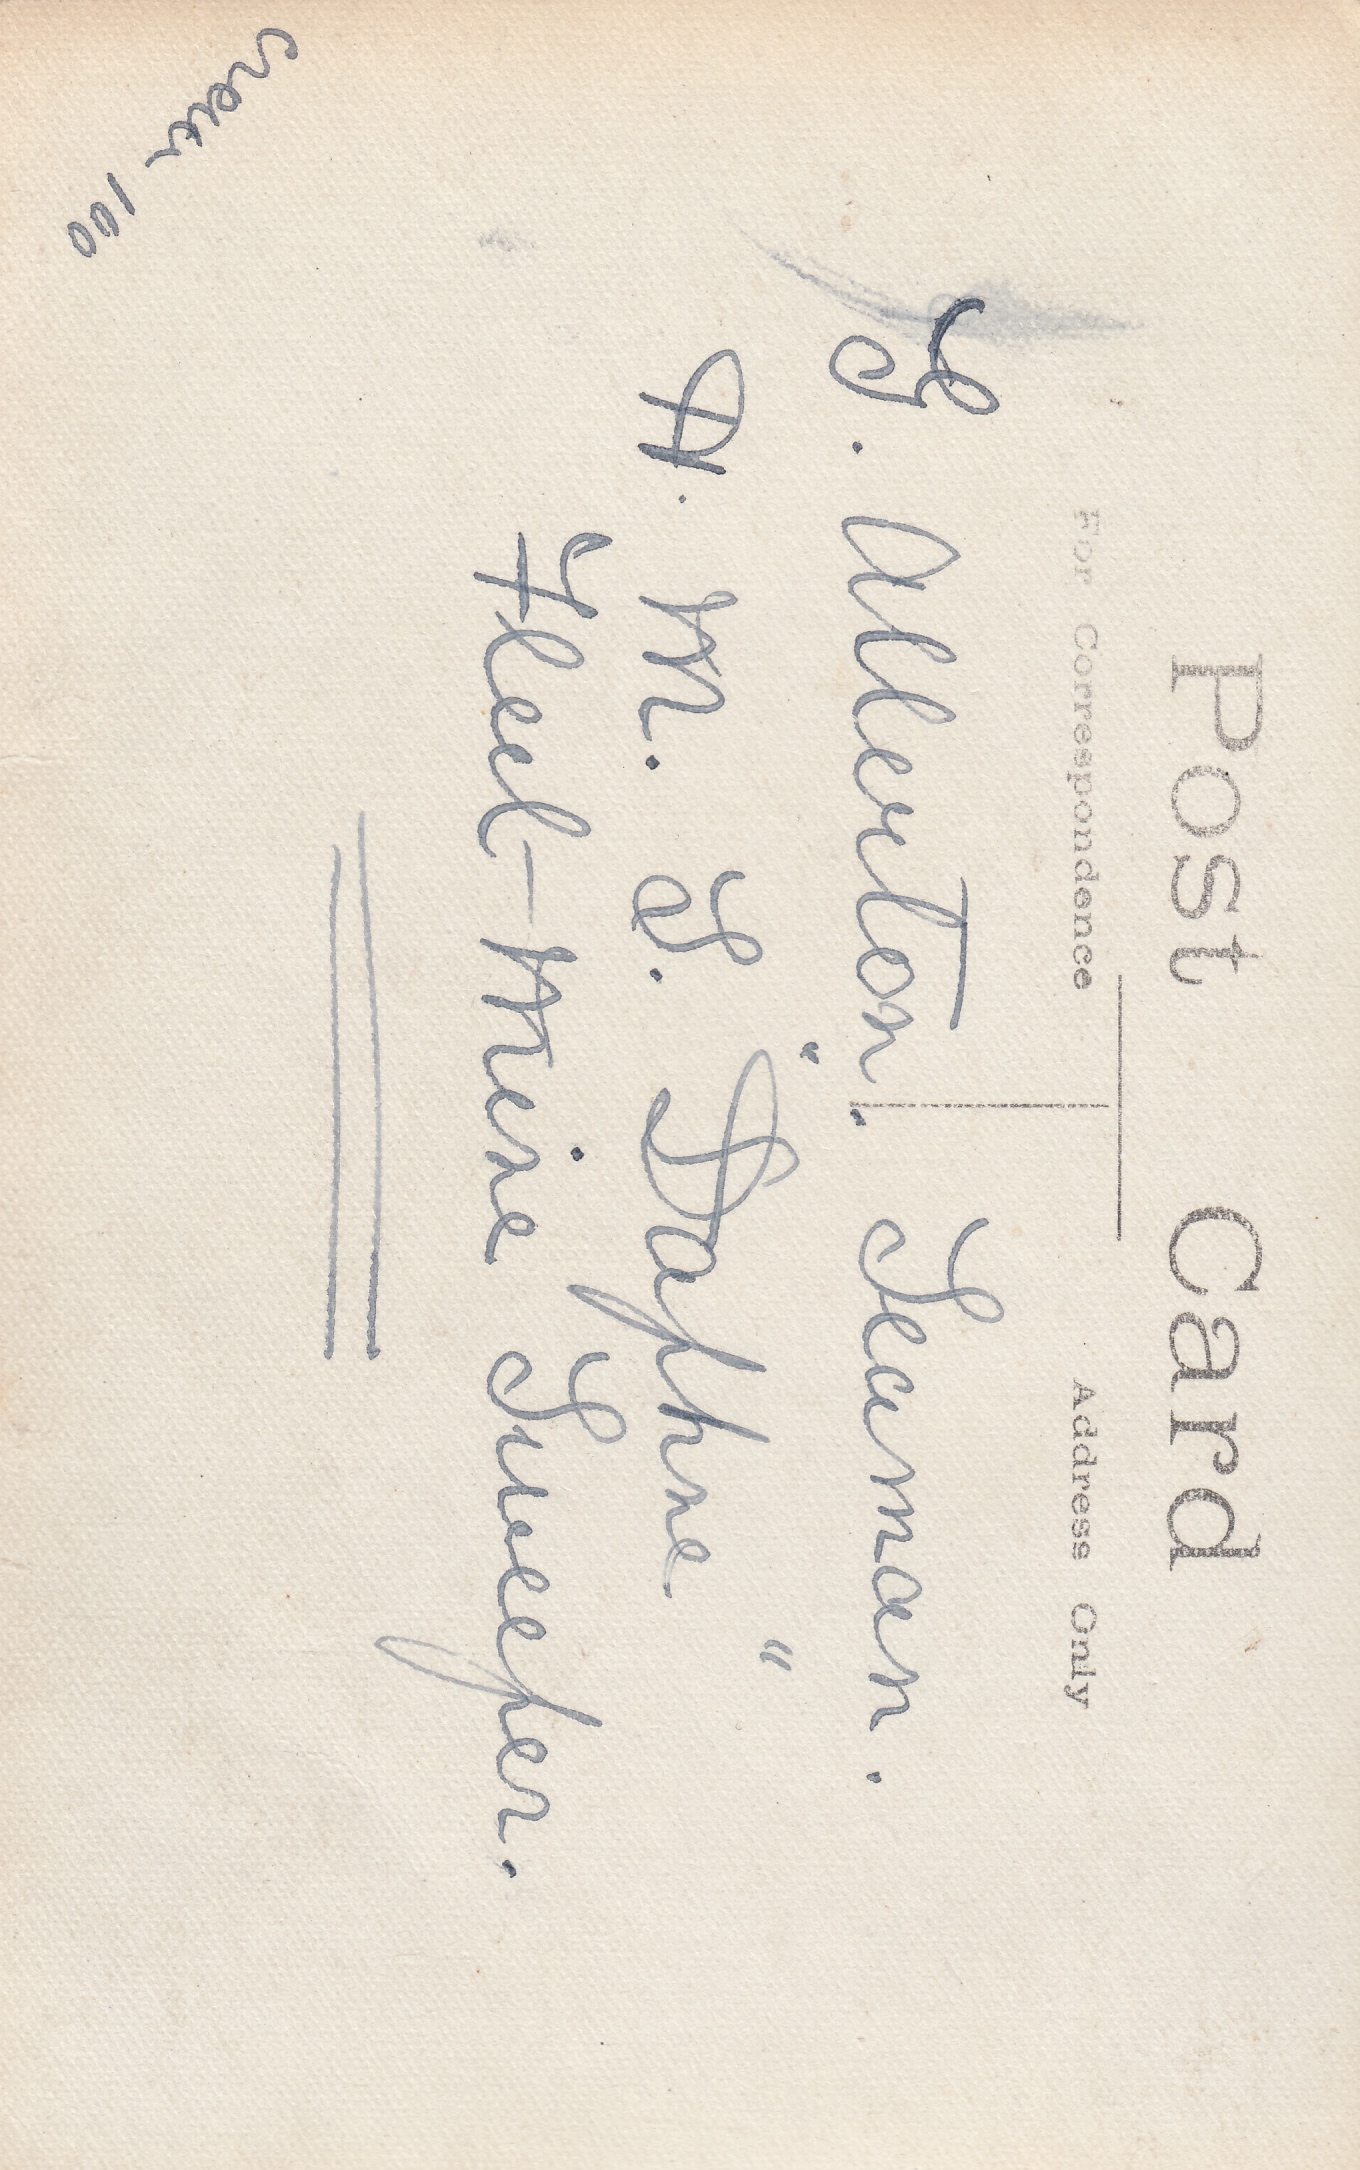 Post Card
For Correspondence Address Only
S. Allerton. Seaman.
H. M. S. "Daphne"
Fleet-Mine Sweeper.
crew 100